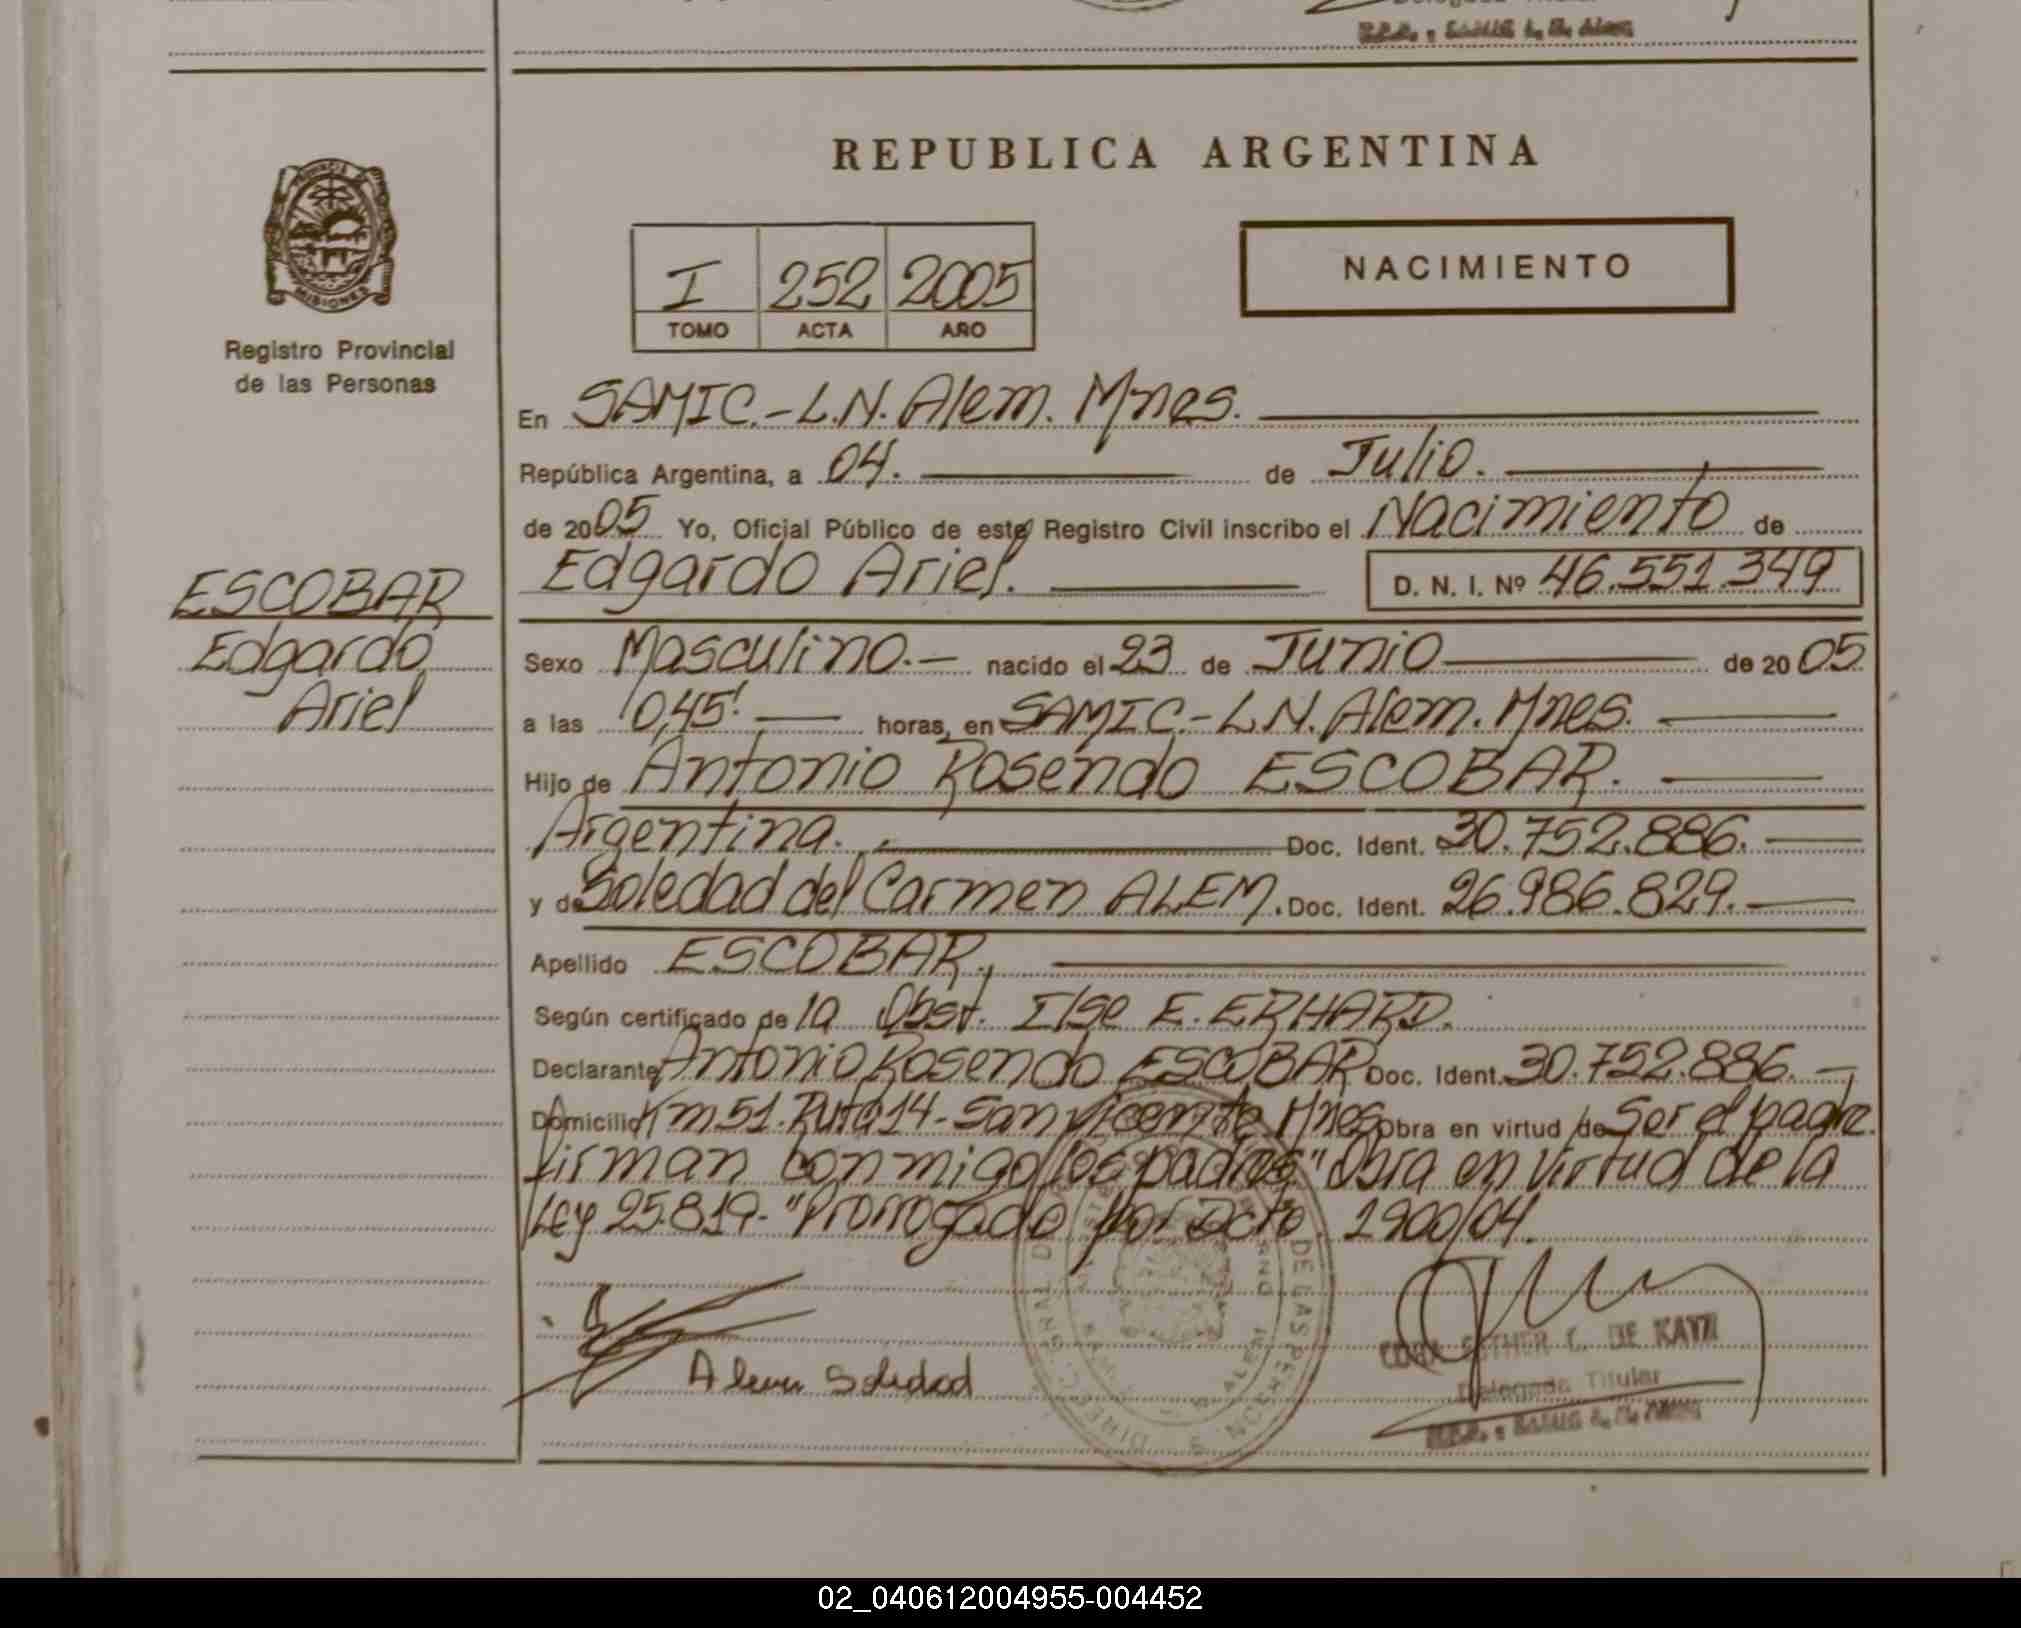 REPUBLICA ARGENTINA
PROVINCIA DE MISIONES
Registro Provincial
de las Personas
I 252 2005
TOMO ACTA AÑO
NACIMIENTO
En SAMIC.-L.N. Alem. Mnes.
República Argentina, a 04. de Julio.
de 2005 Yo, Oficial Público de este Registro Civil inscribo el Nacimiento de
Edgardo Ariel. D. N. I. Nº 46.551.349
ESCOBAR
Edgardo
Ariel
Sexo Masculino.- nacido el 23 de Junio de 2005
a las 10,45'. horas, en SAMIC.-L.N. Alem. Mnes.
Hijo de Antonio Rosendo ESCOBAR.
Argentina. Doc. Ident. 30.752.886.
y de Soledad del Carmen ALEM. Doc. Ident. 26.986.829.
Apellido ESCOBAR.,
Según certificado de la Obst. Ilse E. ERHARD.
Declarante Antonio Rosendo ESCOBAR Doc. Ident. 30.752.886.-
Domicilio Km 51. Ruta 14-San Vicente, Mnes Obra en virtud de Ser el padre.
firman conmigo los padres." Obra en virtud de la
Ley 25.819.- "Prorrogado por Dcto. 1900/04.
Alem Soledad
ESTHER C. DE KATZ
Delegada Titular
02_040612004955-004452